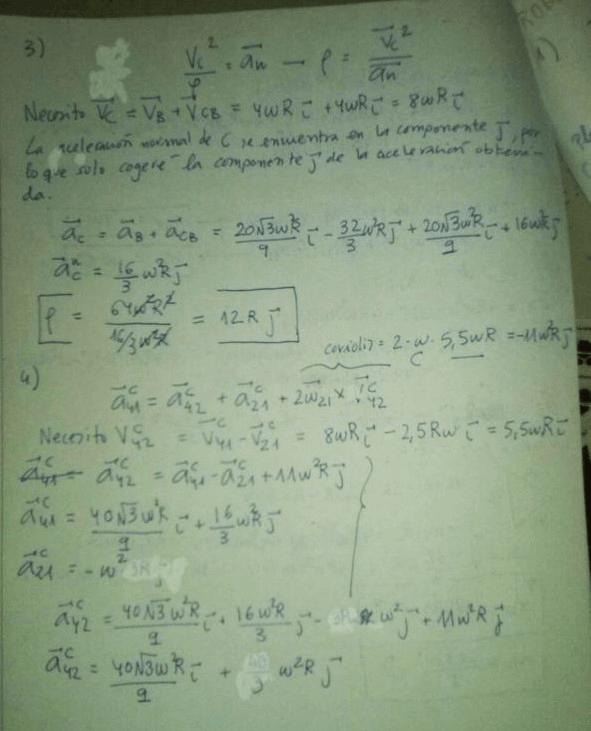 3)
Vc²/ρ = a⃗n → ρ = V⃗c²/a⃗n
Necesito V⃗c = V⃗B + V⃗CB = 4ωR i⃗ + 4ωR i⃗ = 8ωR i⃗
La aceleración normal de C se encuentra en la componente j⃗, por
lo que solo cogeré la componente j⃗ de la aceleración obteni-
da.
a⃗c = a⃗B + a⃗CB = 20√3ω²R/9 i⃗ - 32ω²R/3 j⃗ + 20√3ω²R/9 i⃗ + 16ω²R j⃗
a⃗cⁿ = 16/3 ω²R j⃗
ρ = 64ω²R²/16/3ω²R = 12R j⃗
coriolis = 2·ω·5,5ωR = -11ω²R j⃗
4)
a⃗41^C = a⃗42^C + a⃗21^C + 2ω⃗21 × 42^C
Necesito V42^C = V⃗41^C - V⃗21^C = 8ωR i⃗ - 2,5Rω i⃗ = 5,5ωR i⃗
a⃗42^C = a⃗41^C - a⃗21^C + 11ω²R j⃗
a⃗41^C = 40√3ω²R/9 i⃗ + 16/3 ω²R j⃗
a⃗21^C = -ω² 3R j⃗
a⃗42^C = 40√3ω²R/9 i⃗ + 16ω²R/3 j⃗ - ω² j⃗ + 11ω²R j⃗
a⃗42^C = 40√3ω²R/9 i⃗ + 40/3 ω²R j⃗